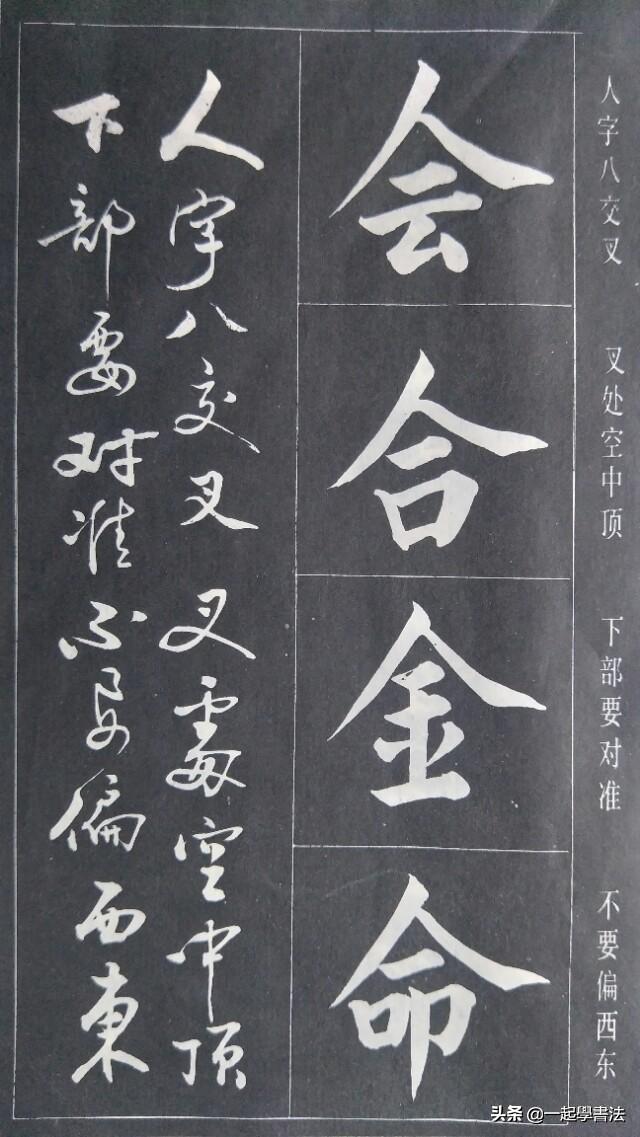 人字八交叉 叉处空中顶 下部要对准 不要偏西东
会
合
金
命
人字八交叉 叉處空中顶
下部要对准不要偏西東
头条 @一起學書法